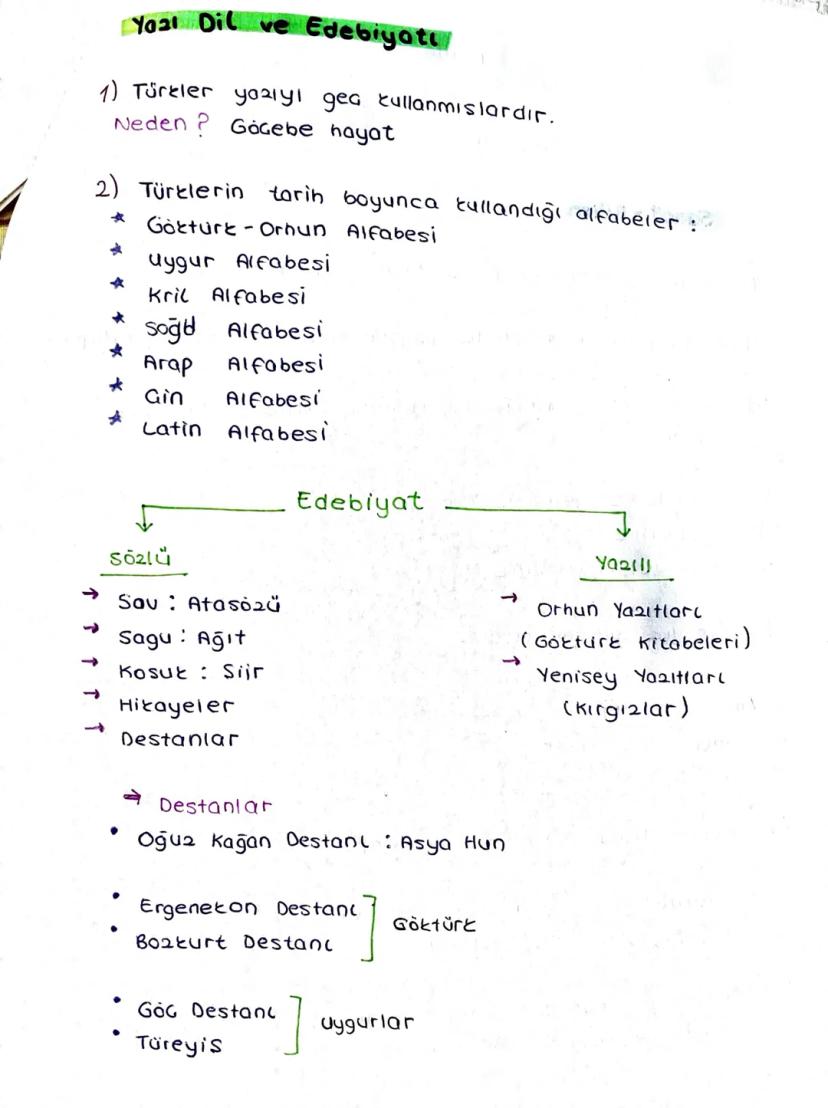 Yazı Dil ve Edebiyatı
1) Türkler yazıyı gec kullanmıslardır.
Neden? Göcebe hayat
2) Türklerin tarih boyunca kullandığı alfabeler :
* Göktürk - Orhun Alfabesi
* Uygur Alfabesi
* Kril Alfabesi
* Soğd Alfabesi
* Arap Alfabesi
* Cin Alfabesi
* Latin Alfabesi
Edebiyat
Sözlü
→ Sav : Atasözü
→ Sagu : Ağıt
→ Kosuk : Siir
→ Hikayeler
→ Destanlar
Yazılı
→ Orhun Yazıtları
(Göktürk Kitabeleri)
→ Yenisey Yazıtları
(Kırgızlar)
⇒ Destanlar
• Oğuz Kağan Destanı : Asya Hun
• Ergenekon Destanı
• Bozkurt Destanı
Göktürk
• Göc Destanı
• Türeyis
Uygurlar